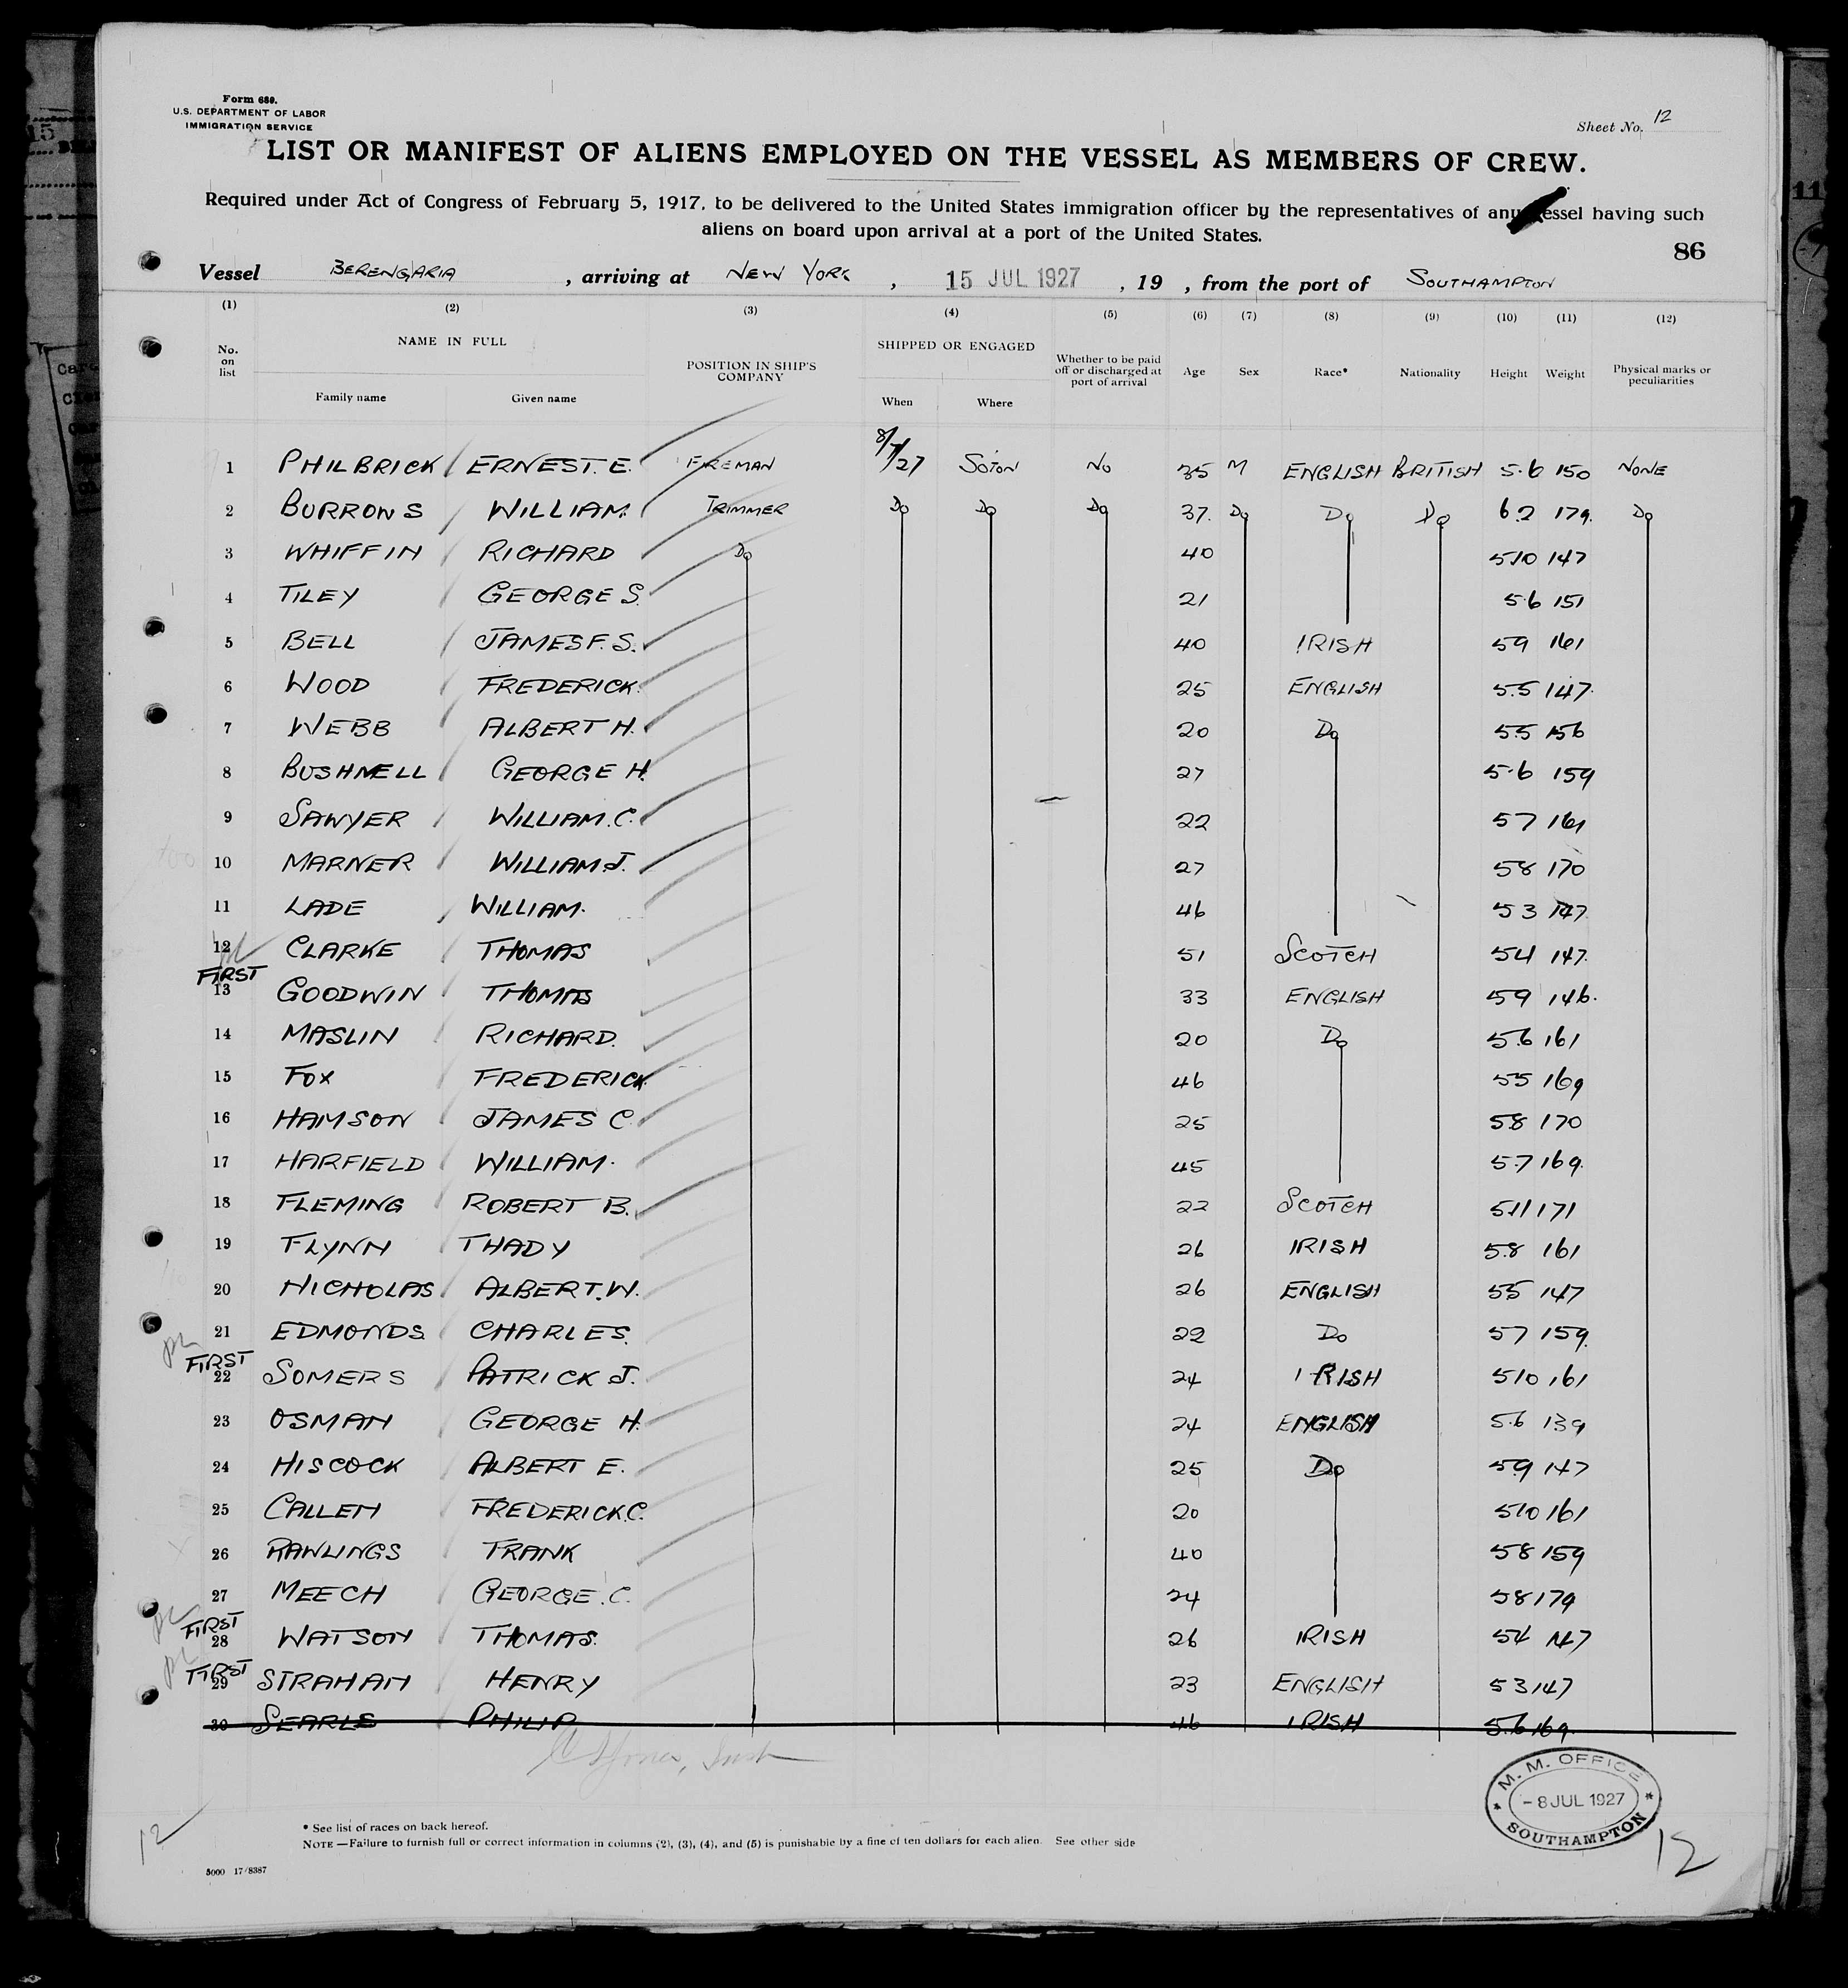 Form 689.
U.S. DEPARTMENT OF LABOR
IMMIGRATION SERVICE
Sheet No. 12
LIST OR MANIFEST OF ALIENS EMPLOYED ON THE VESSEL AS MEMBERS OF CREW.
Required under Act of Congress of February 5, 1917, to be delivered to the United States immigration officer by the representatives of any vessel having such
aliens on board upon arrival at a port of the United States.
86
Vessel BERENGARIA, arriving at NEW YORK, 15 JUL 1927, 19 , from the port of SOUTHAMPTON
(1) (2) (3) (4) (5) (6) (7) (8) (9) (10) (11) (12)
No. on list NAME IN FULL POSITION IN SHIP'S COMPANY SHIPPED OR ENGAGED Whether to be paid off or discharged at port of arrival Age Sex Race* Nationality Height Weight Physical marks or peculiarities
Family name Given name When Where
1 PHILBRICK ERNEST. E. FIREMAN 8/7/27 SOTON NO 35 M ENGLISH BRITISH 5.6 150 NONE
2 BURROWS WILLIAM. TRIMMER DO DO DO 37. DO DO DO 6.2 179. DO
3 WHIFFIN RICHARD DO 40 510 147
4 TILEY GEORGE S. 21 5.6 151
5 BELL JAMES F. S. 40 IRISH 59 161
6 WOOD FREDERICK. 25 ENGLISH 5.5 147.
7 WEBB ALBERT H. 20 DO 55 156
8 BUSHNELL GEORGE H. 27 5.6 159
9 SAWYER WILLIAM. C. 22 57 161
10 MARNER WILLIAM. J. 27 58 170
11 LADE WILLIAM. 46 53 147
12 CLARKE THOMAS 51 SCOTCH 54 147.
FIRST
13 GOODWIN THOMAS 33 ENGLISH 59 146.
14 MASLIN RICHARD. 20 DO 5.6 161
15 FOX FREDERICK 46 55 169
16 HAMSON JAMES C. 25 58 170
17 HARFIELD WILLIAM. 45 5.7 169.
18 FLEMING ROBERT B. 22 SCOTCH 511 171
19 FLYNN THADY 26 IRISH 5.8 161
20 NICHOLAS ALBERT. W. 26 ENGLISH 55 147
21 EDMONDS. CHARLES. 22 DO 57 159.
FIRST
22 SOMERS PATRICK J. 24 IRISH 510 161
23 OSMAN GEORGE H. 24 ENGLISH 5.6 139
24 HISCOCK ALBERT E. 25 DO 59 147
25 CALLEN FREDERICK. C. 20 510 161
26 RAWLINGS FRANK 40 58 159
27 MEECH GEORGE. C. 24 58 179
FIRST
28 WATSON THOMAS. 26 IRISH 54 147
FIRST
29 STRAHAN HENRY 23 ENGLISH 53 147
30 SEARLE PHILIP 46 IRISH 5.6 169.
* See list of races on back hereof.
NOTE—Failure to furnish full or correct information in columns (2), (3), (4), and (5) is punishable by a fine of ten dollars for each alien. See other side
5000 17/8387
12
M. M. OFFICE
- 8 JUL 1927
SOUTHAMPTON
12